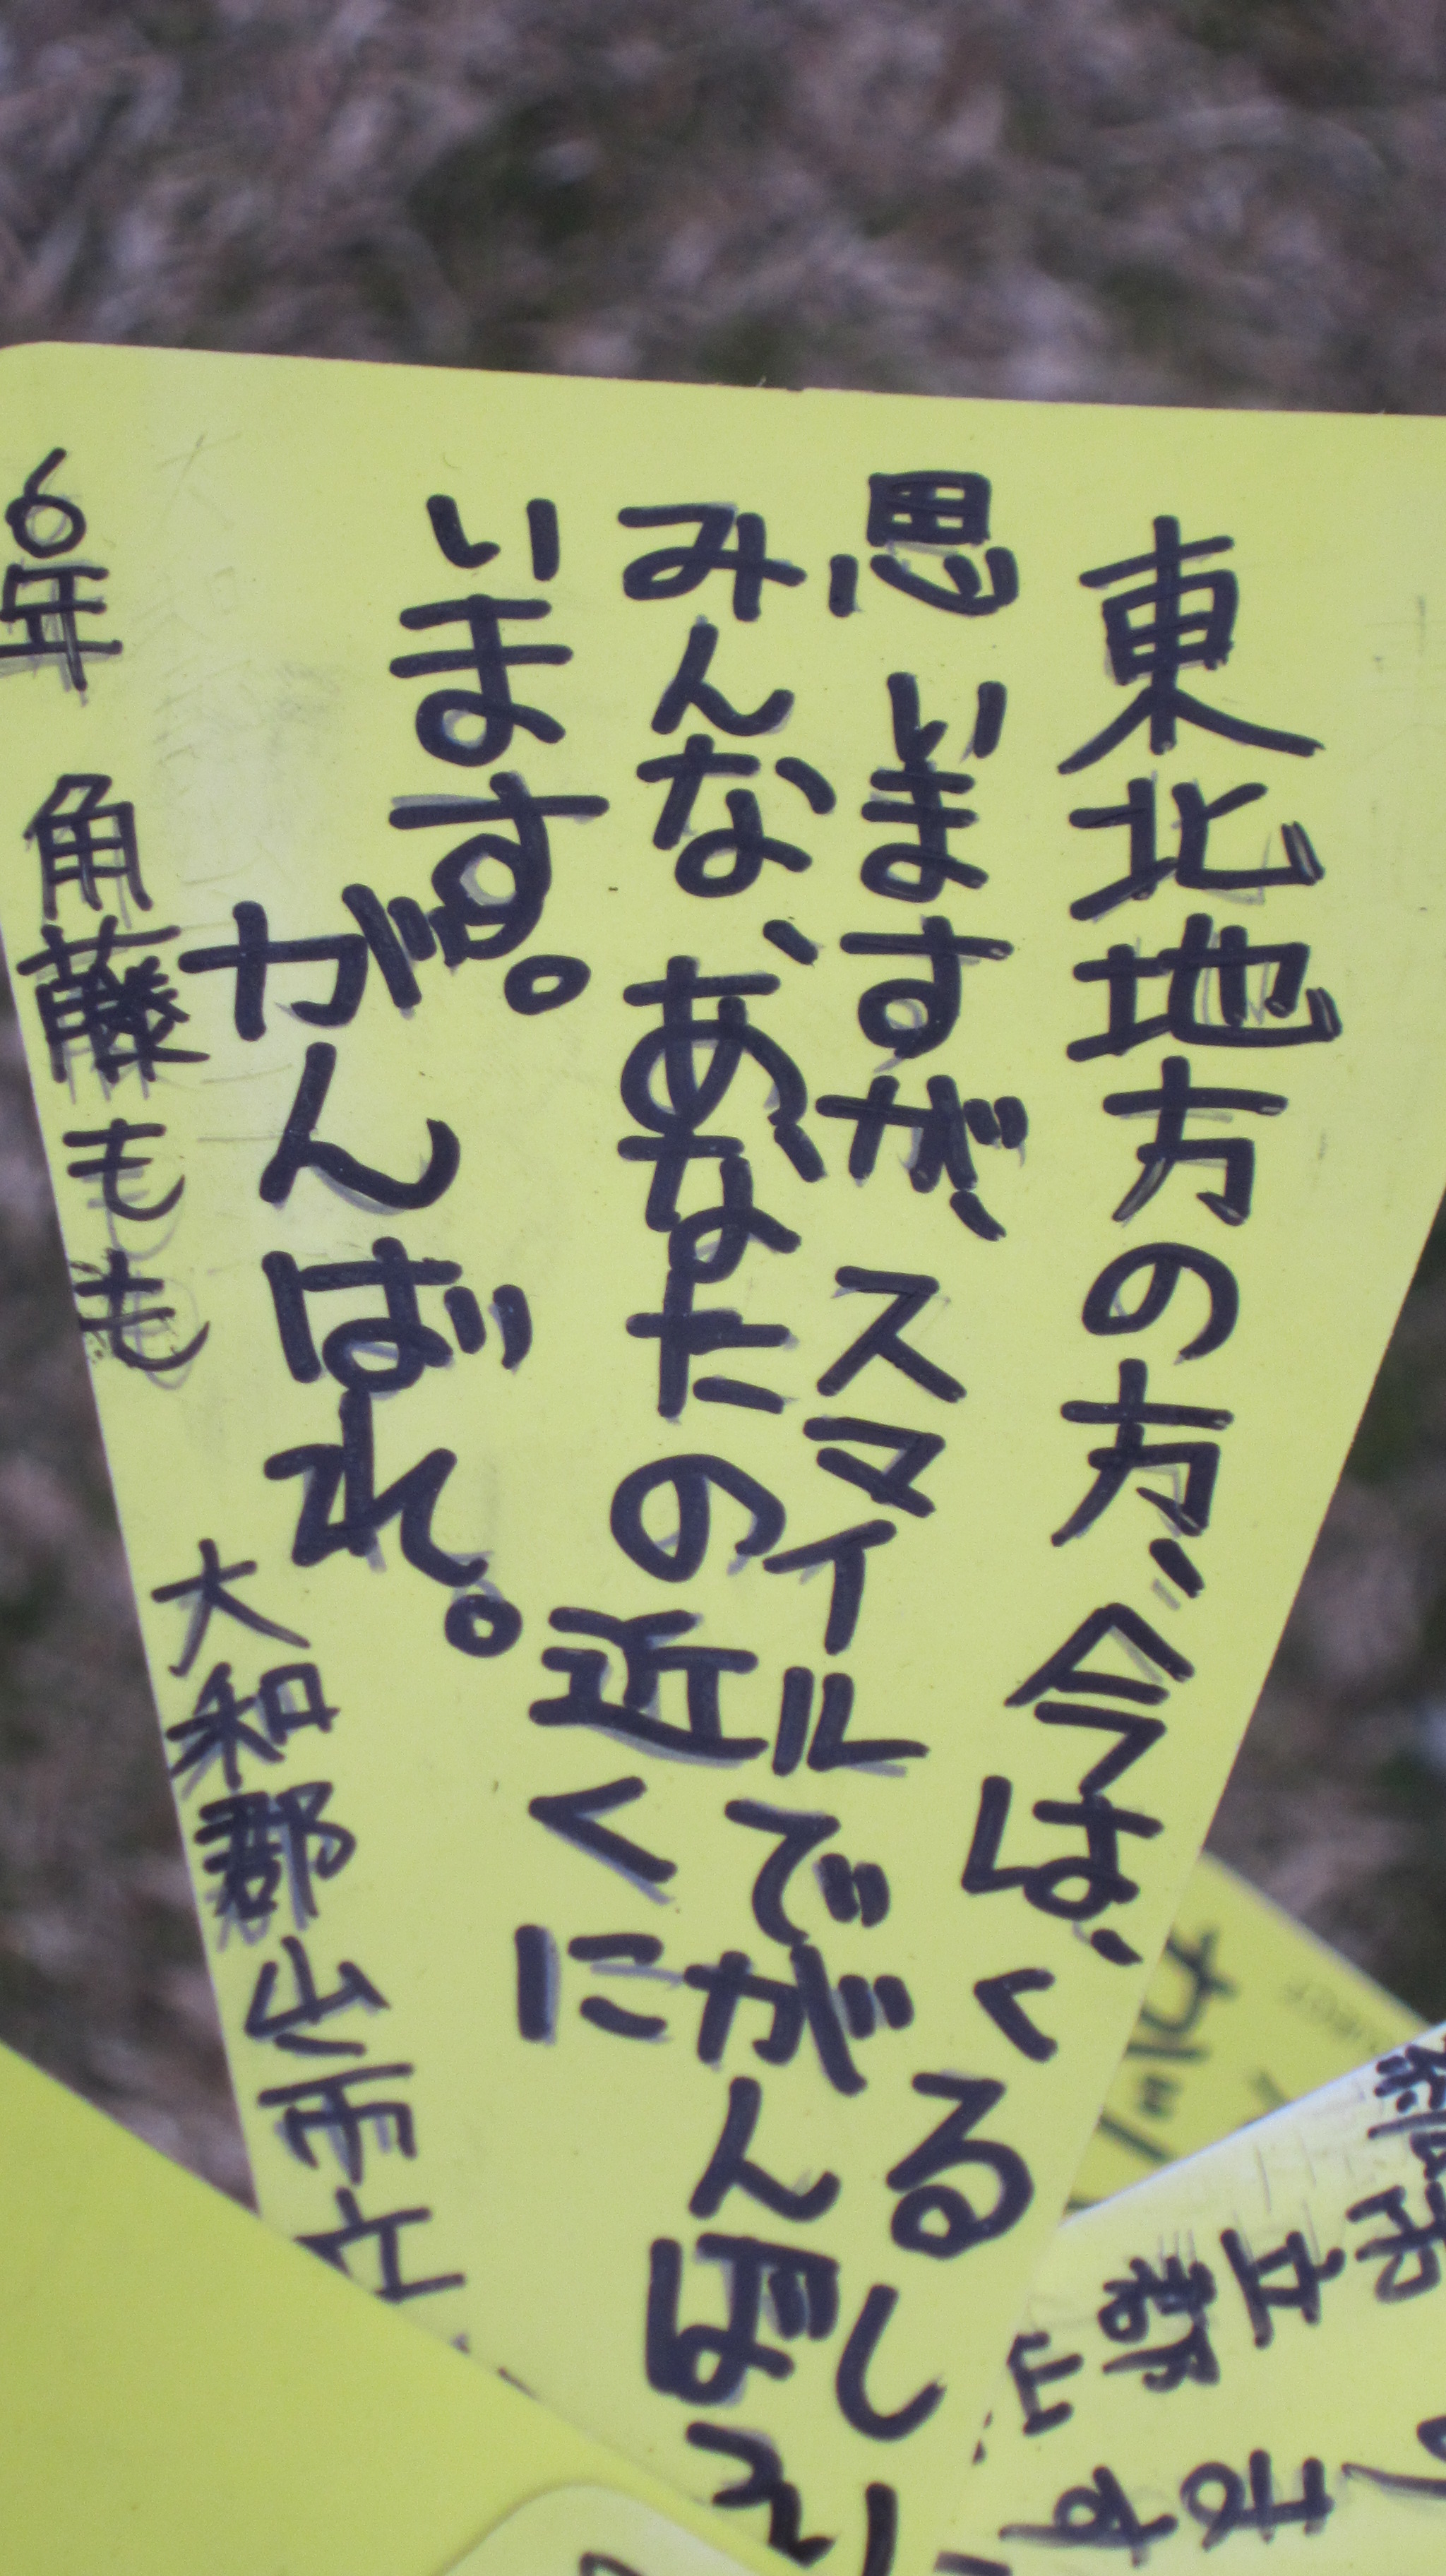 東北地方の方、今は、くるしい
思いますが、スマイルでがんばろ
みんな、あなたの近くに
います。
がんばれ。
6年 角藤もも 大和郡山市立